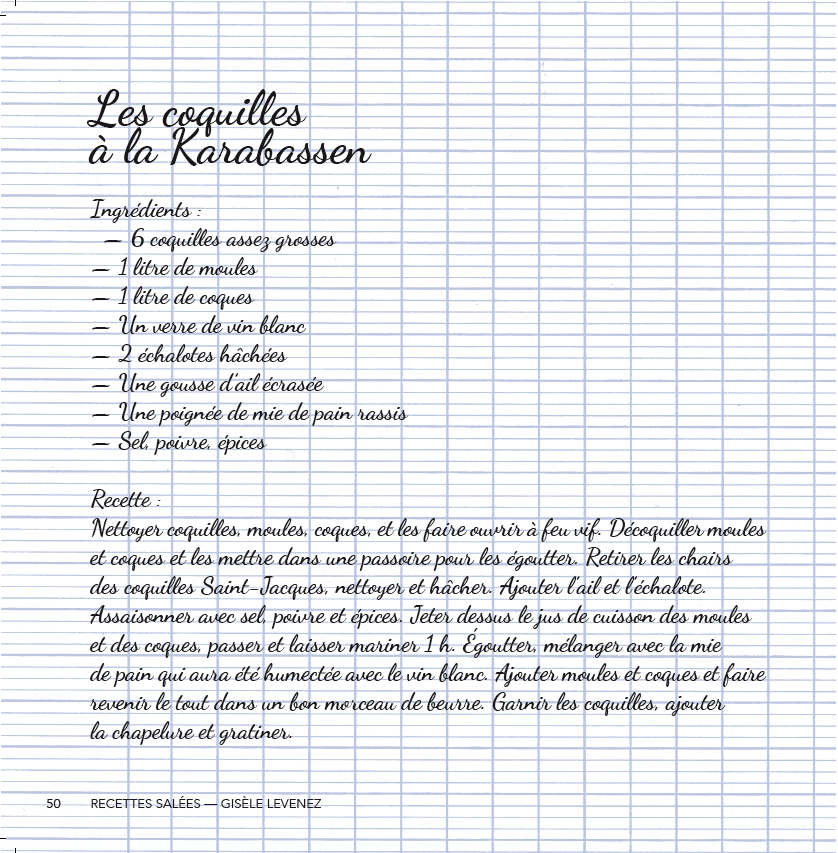 Les coquilles
à la Karabassen
Ingrédients :
— 6 coquilles assez grosses
— 1 litre de moules
— 1 litre de coques
— Un verre de vin blanc
— 2 échalotes hâchées
— Une gousse d'ail écrasée
— Une poignée de mie de pain rassis
— Sel, poivre, épices
Recette :
Nettoyer coquilles, moules, coques, et les faire ouvrir à feu vif. Décoquiller moules
et coques et les mettre dans une passoire pour les égoutter. Retirer les chairs
des coquilles Saint-Jacques, nettoyer et hâcher. Ajouter l'ail et l'échalote.
Assaisonner avec sel, poivre et épices. Jeter dessus le jus de cuisson des moules
et des coques, passer et laisser mariner 1 h. Égoutter, mélanger avec la mie
de pain qui aura été humectée avec le vin blanc. Ajouter moules et coques et faire
revenir le tout dans un bon morceau de beurre. Garnir les coquilles, ajouter
la chapelure et gratiner.
50 RECETTES SALÉES — GISÈLE LEVENEZ